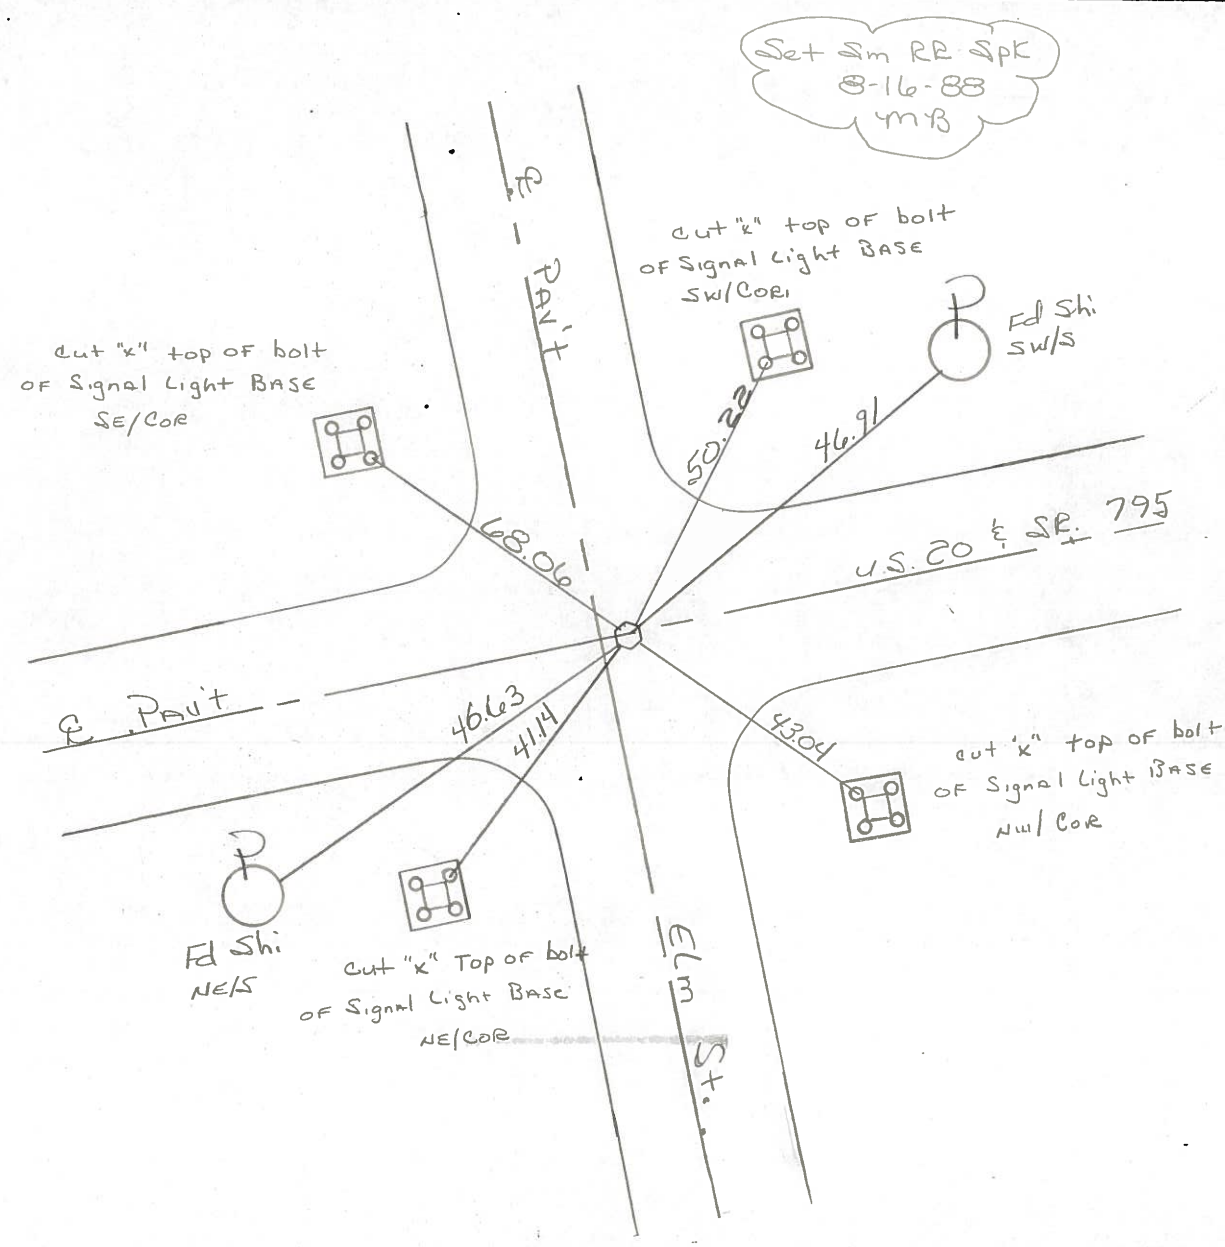 Set Sm RR Spk
8-16-88
MB
℄
Pav't
cut "x" top of bolt
of Signal Light BASE
SW/COR.
P
Fd Shi
SW/S
cut "x" top of bolt
of Signal Light BASE
SE/COR
50.22
46.91
68.06
U.S. 20 & SR. 795
℄ Pav't
46.63
41.14
43.04
cut "x" top of bolt
of Signal Light BASE
NW/COR
P
Fd Shi
NE/S
cut "x" Top of bolt
of Signal Light BASE
NE/COR
ELM St.